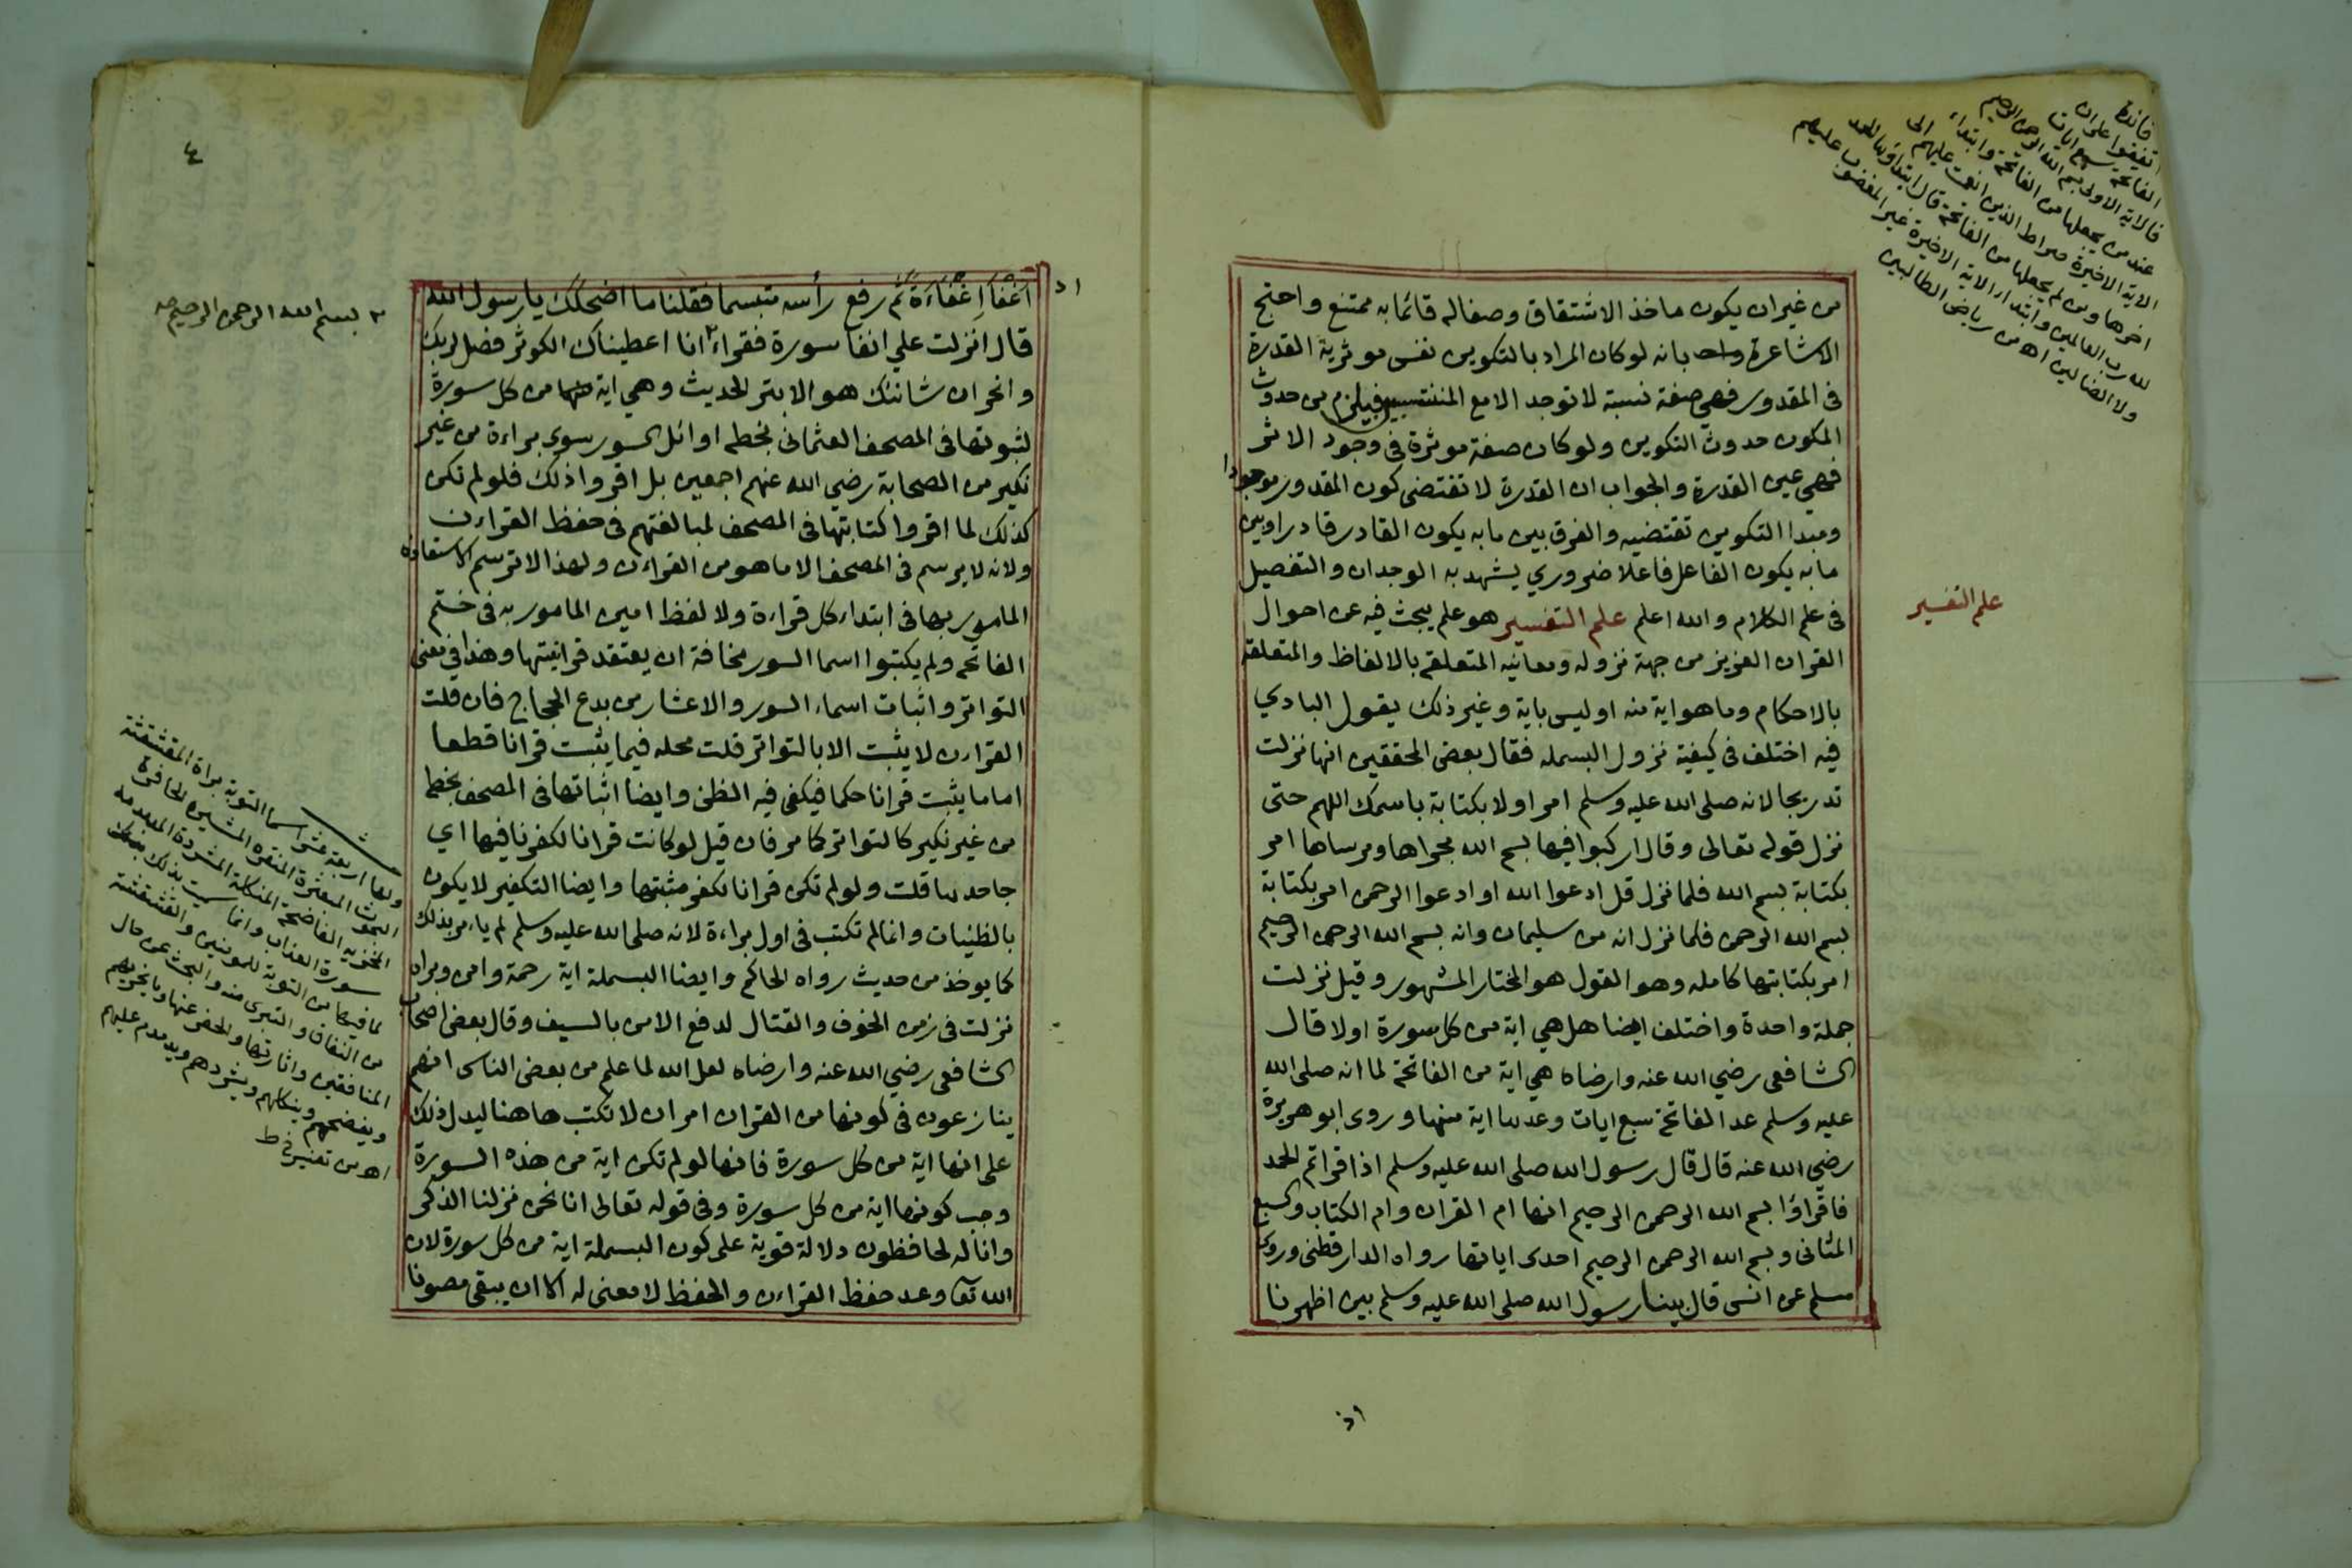 من غير ان يكون ماخذ الاشتقاق وصفا له قائما به ممتنع واحتج
الاشاعرة بانه لو كان المراد بالتكوين نفس موثرية القدرة
فى المقدور فهي صفة نسبة لا توجد الا مع المنتسبين فيلزم من حدوث
المكون حدوث التكوين ولو كان صفة موثرة فى وجود الاثر
فهي عين القدرة والجواب ان القدرة لا تقتضى كون المقدور موجودا
ومبدا التكوين تقتضيه والفرق بين ما به يكون القادر قادرا وبين
ما به يكون الفاعل فاعلا ضروري يشهد به الوجدان والتفصيل
فى علم الكلام والله اعلم علم التفسير هو علم يبحث فيه عن احوال
القران العزيز من جهة نزوله ومعانيه المتعلقة بالالفاظ والمتعلقة
بالاحكام وما هو اية منه او ليس باية وغير ذلك يقول البادي
فيه اختلف فى كيفية نزول البسملة فقال بعض المحققين انها نزلت
تدريجا لانه صلى الله عليه وسلم امر اولا بكتابة باسمك اللهم حتى
نزل قوله تعالى وقال اركبوا فيها بسم الله مجراها ومرساها امر
بكتابة بسم الله فلما نزل قل ادعوا الله او ادعوا الرحمن امر بكتابة
بسم الله الرحمن فلما نزل انه من سليمان وانه بسم الله الرحمن الرحيم
امر بكتابتها كاملة وهو القول هو المختار المشهور وقيل نزلت
جملة واحدة واختلف ايضا هل هي اية من كل سورة اولا قال
الشافعى رضي الله عنه وارضاه هي اية من الفاتحة لما انه صلى الله
عليه وسلم عد الفاتحة سبع ايات وعدها اية منها وروى ابو هريرة
رضي الله عنه قال قال رسول الله صلى الله عليه وسلم اذا قراتم الحمد
فاقراؤا بسم الله الرحمن الرحيم انها ام القران وام الكتاب والسبع
المثانى وبسم الله الرحمن الرحيم احدى اياتها رواه الدارقطنى وروى
مسلم عن انس قال بينا رسول الله صلى الله عليه وسلم بين اظهرنا
اذ
علم التفسير
فائدة
اتفقوا على ان
الفاتحة سبع ايات
فالاية الاولى بسم الله الرحمن الرحيم
عند من يجعلها من الفاتحة وابتداء
الاية الاخيرة صراط الذين انعمت عليهم الى
اخرها ومن لم يجعلها من الفاتحة قال ابتداؤها الحمد
لله رب العالمين وابتداء الاية الاخيرة غير المغضوب عليهم
ولا الضالين اه من رياض الطالبين
٤
اذ
اغفا اغفاءة ثم رفع رأسه متبسما فقلنا ما اضحكك يا رسول الله
قال انزلت علي انفا سورة فقراء٢ انا اعطيناك الكوثر فصل لربك
وانحر ان شانئك هو الابتر الحديث وهي اية من كل سورة
لثبوتها فى المصحف العثمانى بخطه اوائل السور سوى براءة من غير
نكير من الصحابة رضي الله عنهم اجمعين بل اقروا ذلك فلو لم تكن
كذلك لما اقروا كتابتها فى المصحف لمبالغتهم فى حفظ القراءن
ولانه لا يرسم فى المصحف الا ما هو من القراءن ولهذا لا ترسم الاستعاذة
المامور بها فى ابتداء كل قراءة ولا لفظ امين المامور به فى ختم
الفاتحة ولم يكتبوا اسما السور مخافة ان يعتقد قرانيتها وهذا في معنى
التواتر واثبات اسماء السور والاعشار من بدع الحجاج فان قلت
القراءن لا يثبت الا بالتواتر قلت محله فيما يثبت قرانا قطعا
اما ما يثبت قرانا حكما فيكفى فيه الظن وايضا اثباتها فى المصحف بخطه
من غير نكير كالتواتر كما مر فان قيل لو كانت قرانا لكفرنا فيها اي
جاحدها قلت ولو لم تكن قرانا لكفر مثبتها وايضا التكفير لا يكون
بالظنيات وانما لم تكتب فى اول براءة لانه صلى الله عليه وسلم لم ياءمر بذلك
كما يوخذ من حديث رواه الحاكم وايضا البسملة اية رحمة وامن وبراه
نزلت فى زمن الخوف والقتال لدفع الامن بالسيف وقال بعض اصحاب
الشافعى رضي الله عنه وارضاه لعل الله لما علم من بعض الناس انهم
ينازعون فى كونها من القران امر ان لا تكتب هاهنا ليدل ذلك
على انها اية من كل سورة فانها لو لم تكن اية من هذه السورة
وجب كونها اية من كل سورة وفى قوله تعالى انا نحن نزلنا الذكر
وانا له لحافظون دلالة قوية على كون البسملة اية من كل سورة لان
الله تعا وعد حفظ القراءن والحفظ لا معنى له الا ان يبقى مصونا
٢ بسم الله الرحمن الرحيم صح
ولها اربعة عشر اسما التوبة براة المقشقشة
البحوث المبعثرة المنقرة المثيرة الحافرة
المخزيه الفاضحة المنكلة المشردة المدمدمة
سورة العذاب وانما سميت بذلك
لما فيها من التوبة للمومنين والقشقشة
من النفاق والتبرى منه والبحث عن حال
المنافقين واثارتها والحفر عنها وما يخزيهم
ويفضحهم وينكلهم ويشردهم ويدمدم عليهم
اه من تفسير